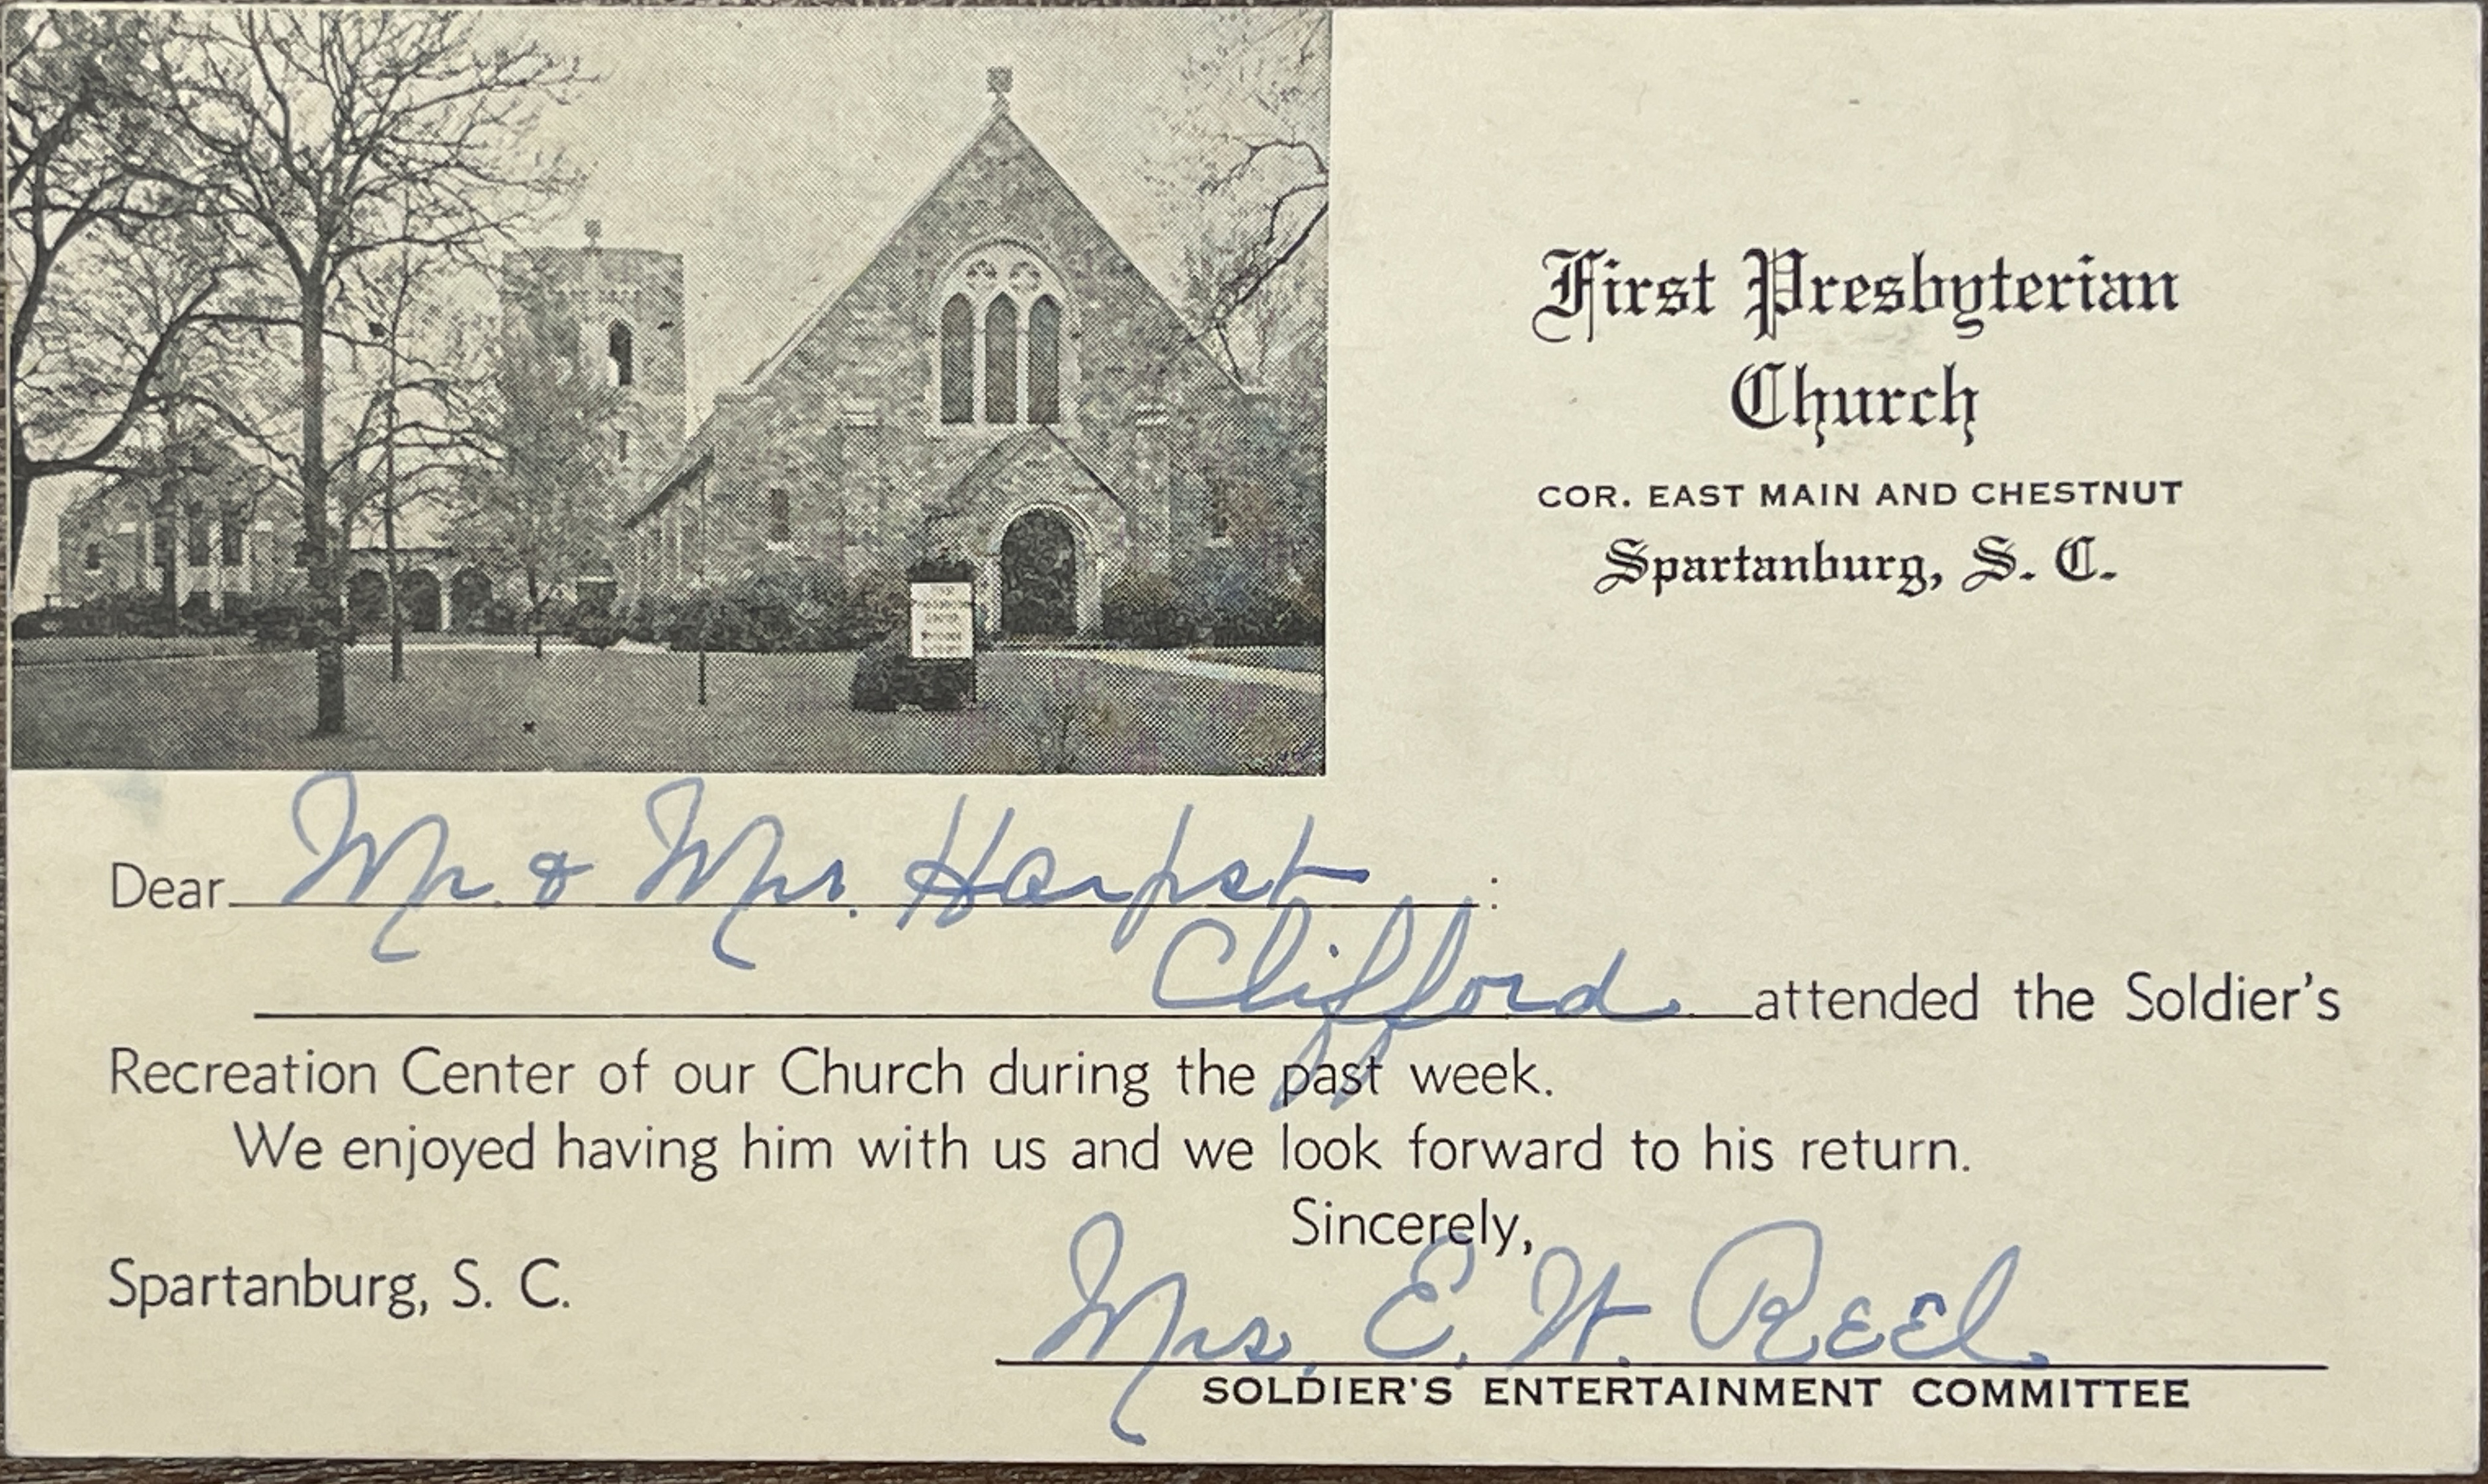 First Presbyterian
Church
COR. EAST MAIN AND CHESTNUT
Spartanburg, S. C.
Dear Mr. & Mrs. Harpst :
Clifford attended the Soldier's
Recreation Center of our Church during the past week.
We enjoyed having him with us and we look forward to his return.
Sincerely,
Spartanburg, S. C.
Mrs. E. W. Reel
SOLDIER'S ENTERTAINMENT COMMITTEE